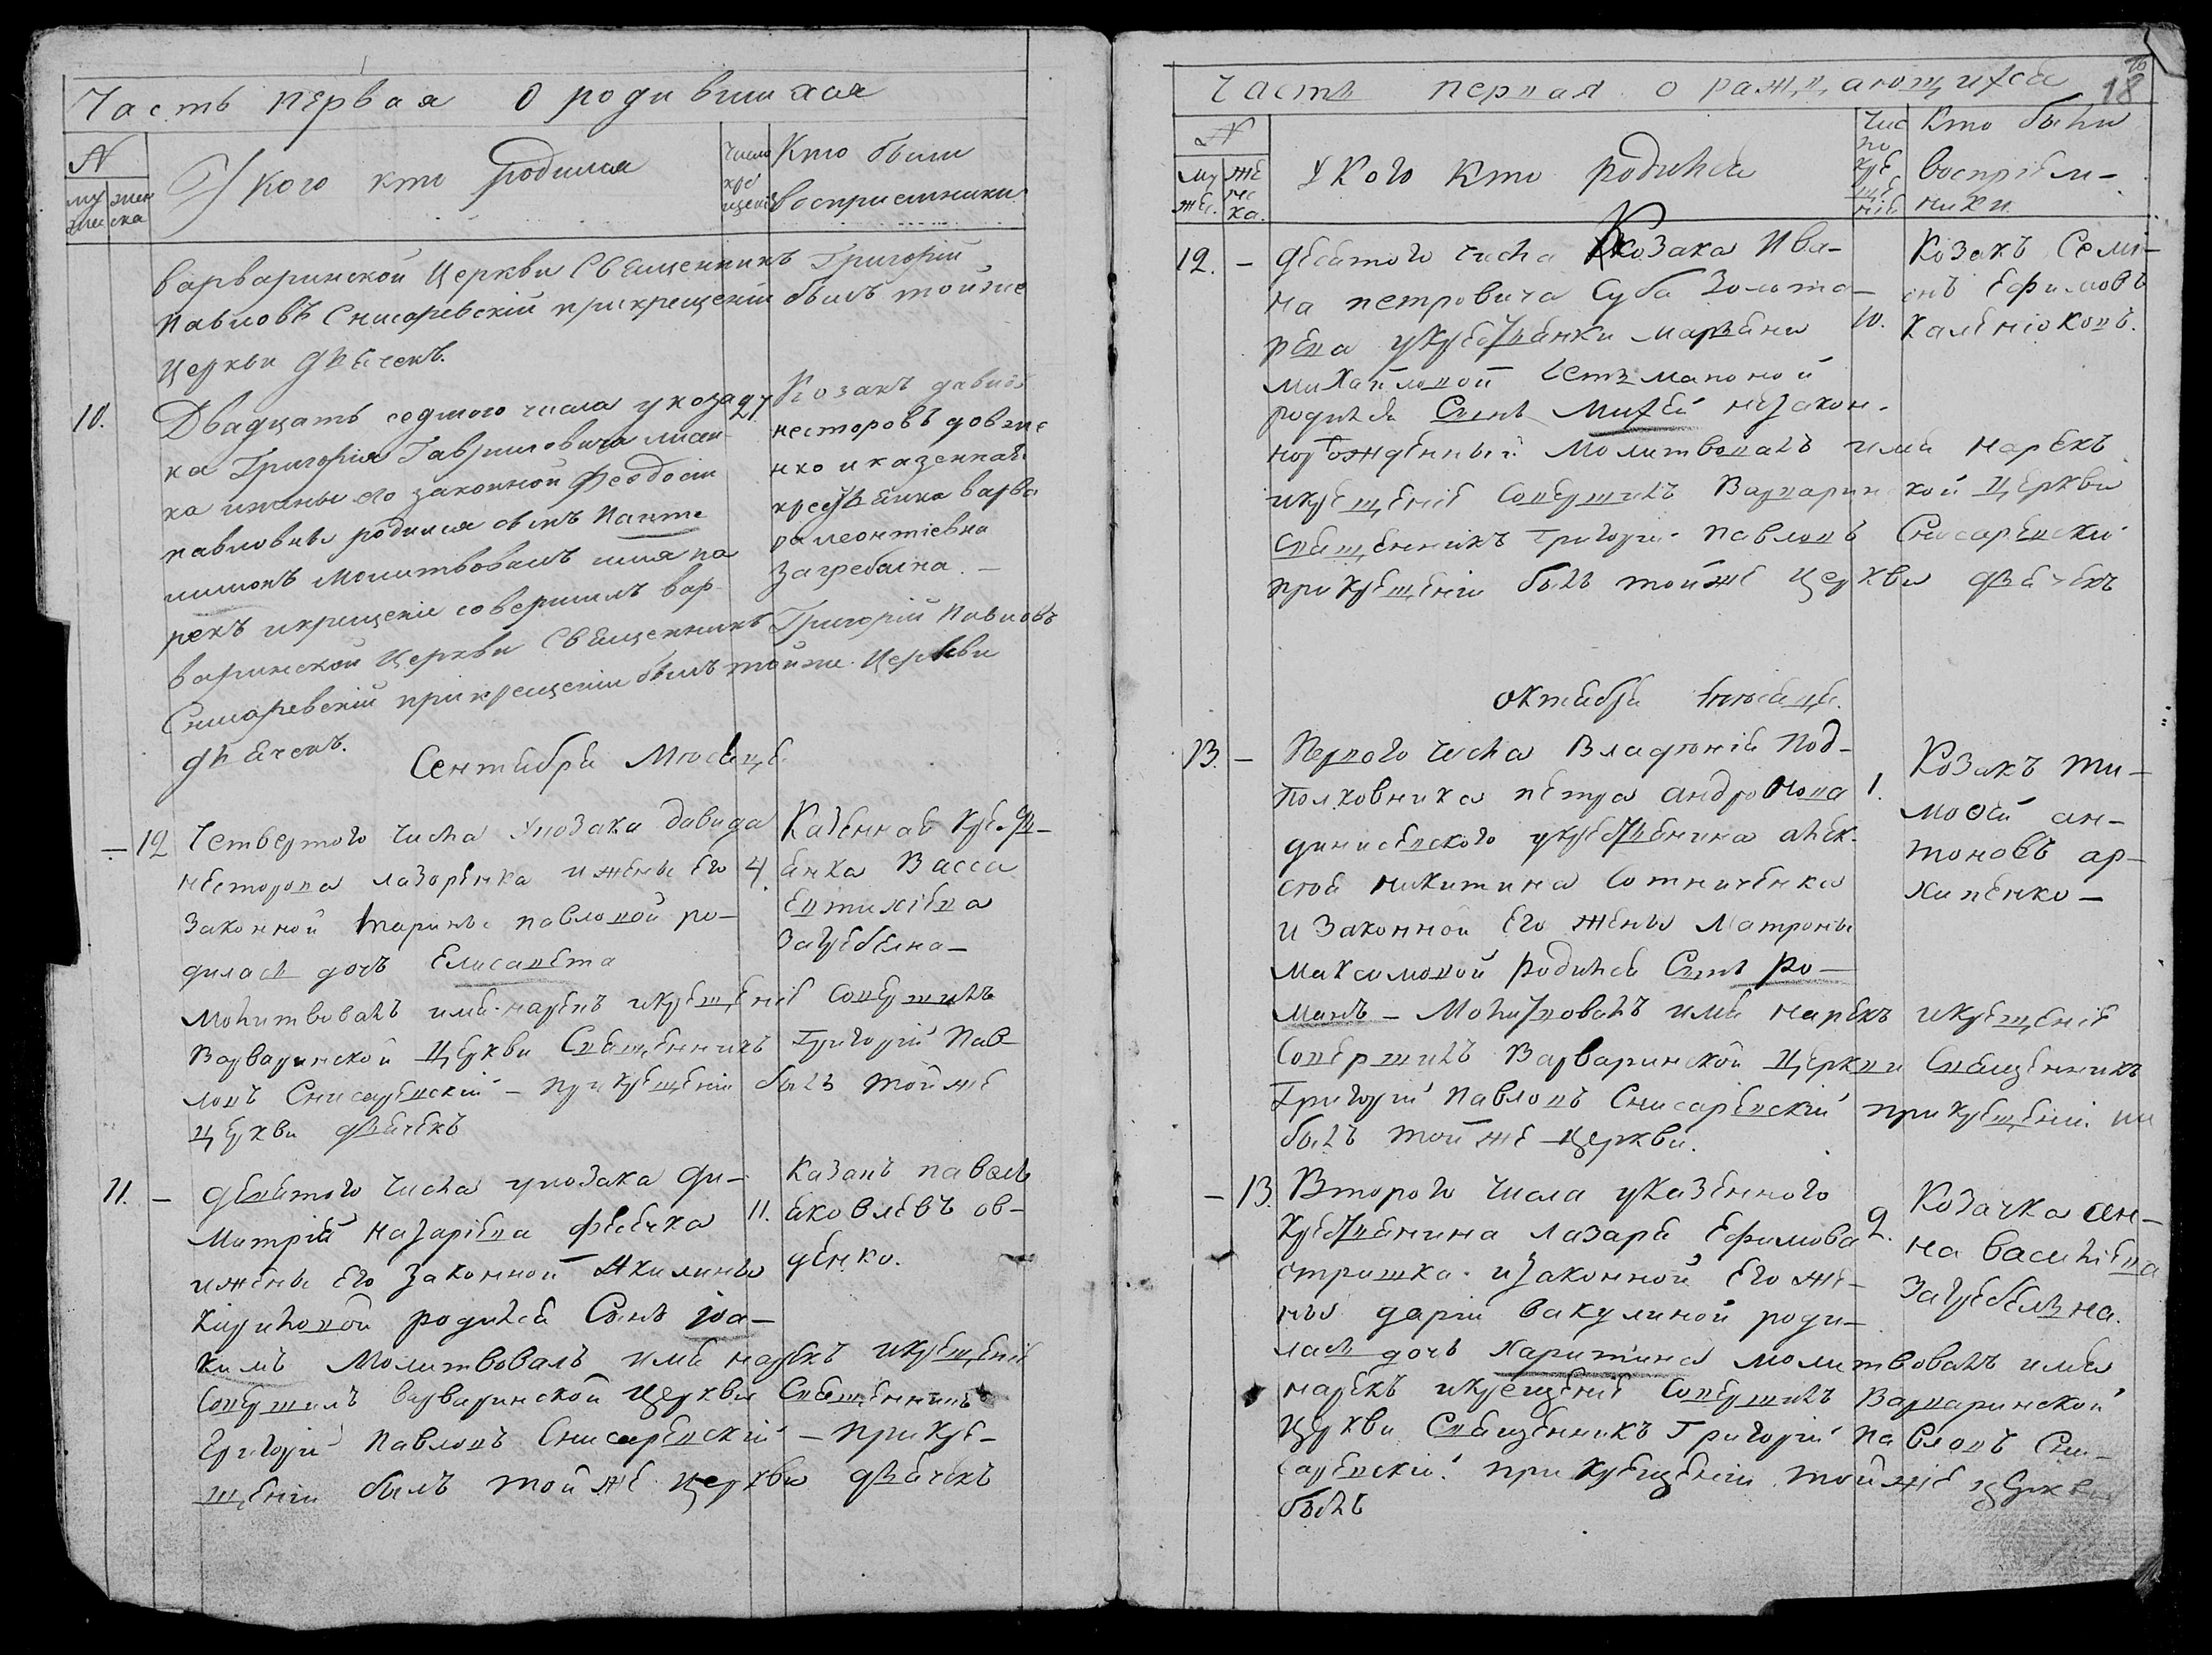 Часть первая О родившихся
N
муж женска
У кого кто родился
Число крещения
Кто были
восприемники
Варваринской Церкви Священникъ Григорій
Павловъ Снисаревскій прикрещеніи былъ тойже
Церкви дячекъ.
10.
Двадцать седмого числа у коза 27
ка Григорія Гавриловича
ка ижены его законной Феодосіи
павловны родился сынъ Панте
лимонъ молитвовалъ имя на
рекъ икрещеніе совершилъ вар
варинской Церкви Священникъ Григорій Павловъ
Снисаревскій прикрещеніи былъ тойже Церкви
дячекъ.
Козакъ давидъ
несторовъ
нко и казенная
крестянка варва
ра леонтіевна
Загребелна. —
Сентября Мюсяце
— 12 Четвертого числа укозака давида
несторова лазоренка ижены его 4.
Законной Марины павловой ро—
дилась дочъ Елисавета
молитвовалъ имя нарекъ икрещеніе совершилъ
Варваринской Церкви Священникъ Григорій Пав—
ловъ Снисаревскій — прикрещеніи былъ тойже
церкви дячекъ
Казенная крест—
янка Васса
Евтихіева
Загребелна—
11. — девятого числа укозака ди—
митрія назаріева 11.
ижены его законной Акилины
кириловой родился Сынъ іоа—
кимъ Молитвовалъ имя нарекъ икрещеніе
совершилъ варваринской церкви Священникъ
Григорій Павловъ Снисаревскій — прикре—
щеніи былъ тойже церкви дячекъ
Казакъ павелъ
яковлевъ ов—
денко.
Часть первая о раждающихся 18
N
муж. женска.
У кого кто родился
Число крещенія
Кто были
восприем—
ники
12. — десятого числа Козака Ива—
на петровича Суба Золота—
рева укрестянки маряны 10.
михайловой Гетмановой
родился Сынъ Михей незакон—
норожденный Молитвовалъ имя нарекъ
икрещеніе совершилъ Варваринской церкви
Священникъ Григорій Павловъ Снисаревскій
прикрещеніи былъ тойже церкви дячекъ
Козакъ Семі—
онъ Ефимовъ
Каленіоковъ.
октября мюсяце.
13. — Первого числа Владюнія Под—
полковника петра андронова 1.
динисевского укрестянина алек—
сюя никитина Сотниченка
и Законной его жены Матроны
максимовой родился Сынъ ро—
манъ — Молитвовалъ имя нарекъ икрещеніе
совершилъ Варваринской церкви Священникъ
Григорій Павловъ Снисаревскій прикрещеніи
былъ тойже церкви.
Козакъ ти—
моѳей ан—
тоновъ ар—
хипенко —
— 13. Второго числа указенного
крестянина лазаря Ефимова 2.
стришка. изаконной его же—
ны даріи вакулиной роди—
лась дочъ Харитина молитвовалъ имя
нарекъ икрещеніе совершилъ Варваринской
Церкви Священникъ Григорій Павловъ Сни—
саревскій. прикрещеніи тойже церкви
былъ
Козачка ан—
на василіева
Загребелзна.